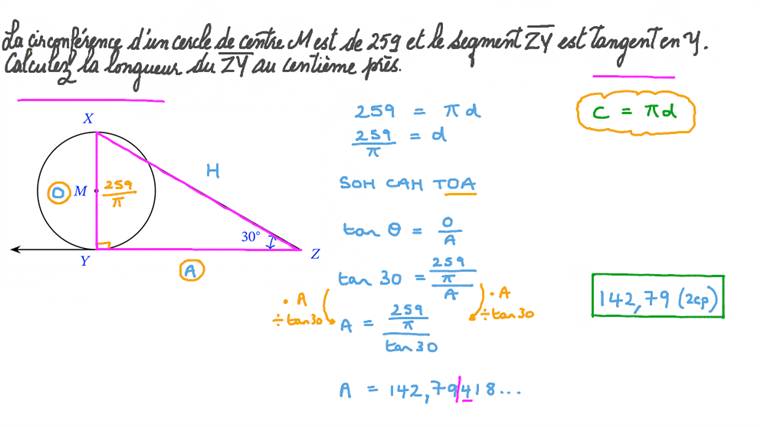 La circonférence d'un cercle de centre M est de 259 et le segment ZY est tangent en Y.
Calculez la longueur du ZY au centième près.
X
H
O
M
259/π
30°
Y
A
Z
259 = πd
259/π = d
SOH CAH TOA
tan θ = O/A
tan 30 = (259/π)/A
· A
÷tan30
· A
÷tan30
A = (259/π)/tan30
A = 142,79|418...
C = πd
142,79 (2cp)